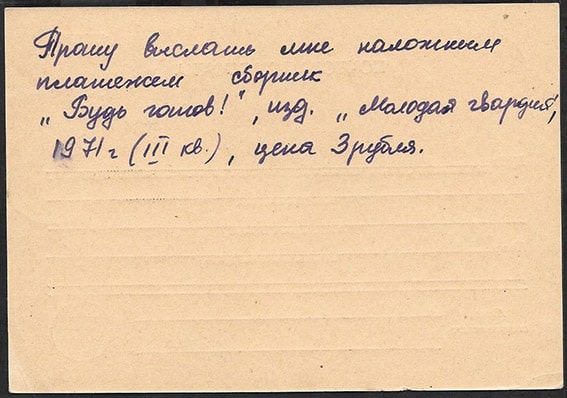 Прошу выслать мне наложным
платежем сборник
„Будь готов!", изд. „Молодая гвардия",
1971 г (III кв.), цена 3 рубля.